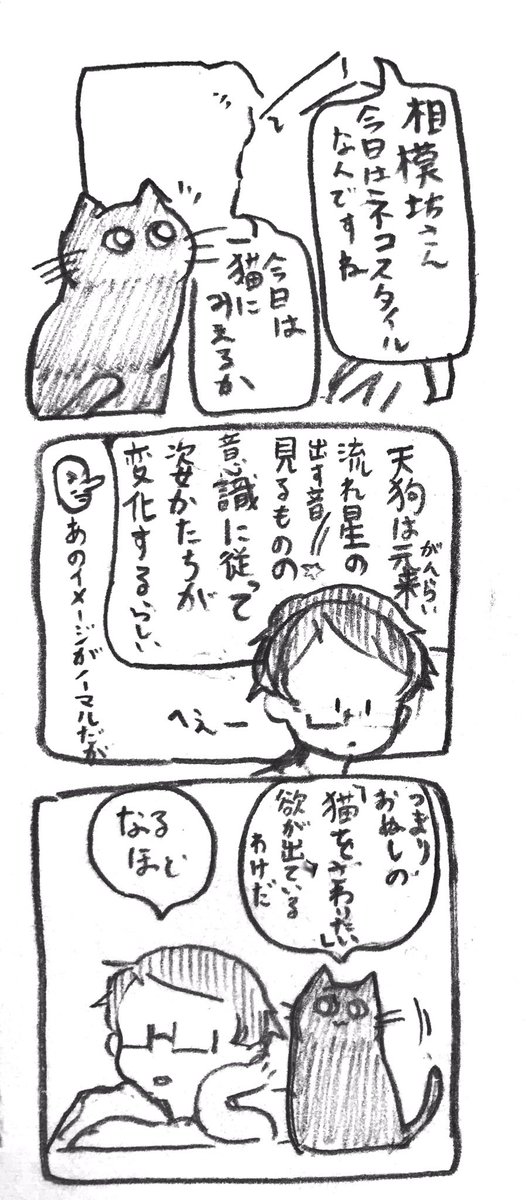 相模坊さん
今日はネコスタイル
なんですね
今日は
猫に
みえるか
天狗は元来
がんらい
流れ星の
出す音!!
見るものの
意識に従って
姿かたちが
変化するらしい
あのイメージがノーマルだが
へぇー
つまり
おぬしの
「猫をさわりたい」
欲が出ている
わけだ
なる
ほど